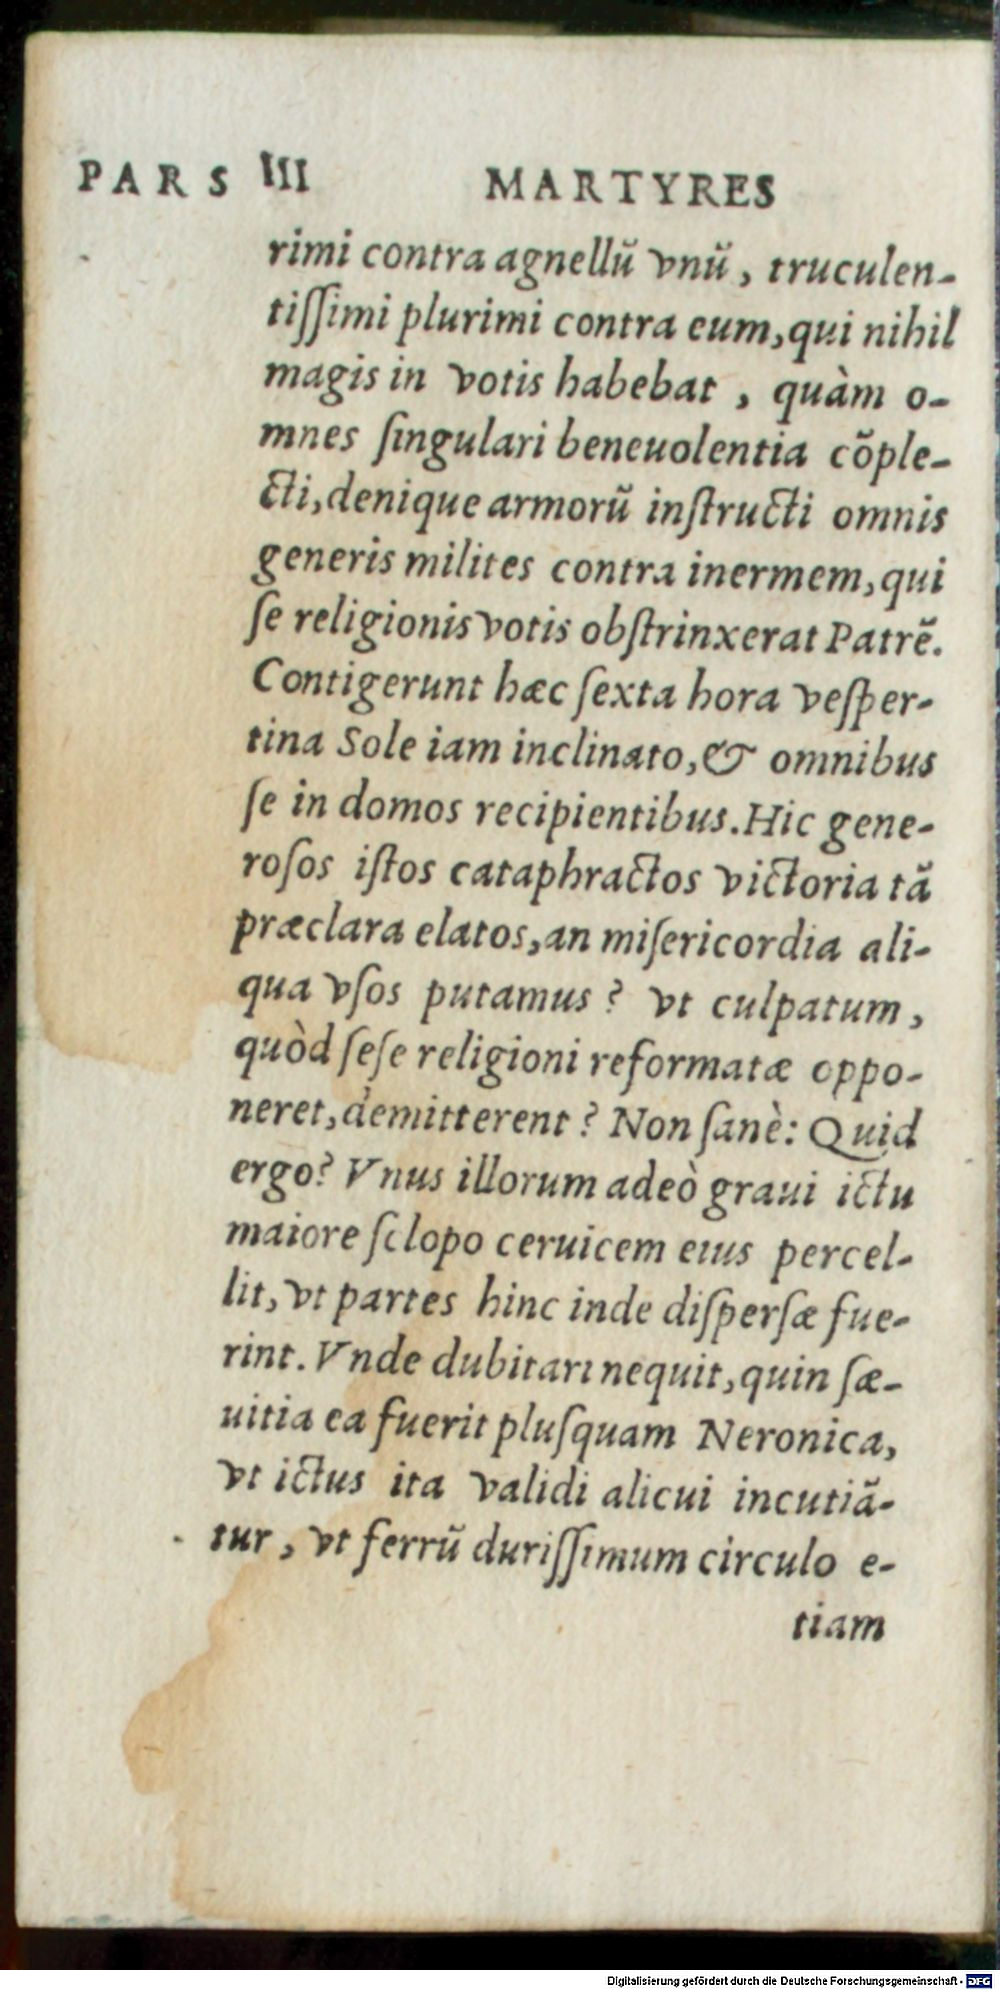 PARS III MARTYRES
rimi contra agnellũ vnũ, truculen-
tiſſimi plurimi contra eum,qui nihil
magis in votis habebat, quàm o-
mnes ſingulari beneuolentia cõple-
cti,denique armorũ inſtructi omnis
generis milites contra inermem,qui
ſe religionis votis obſtrinxerat Patrẽ.
Contigerunt hæc ſexta hora veſper-
tina Sole iam inclinato,& omnibus
ſe in domos recipientibus.Hic gene-
roſos iſtos cataphractos victoria tã
præclara elatos,an miſericordia ali-
qua vſos putamus? vt culpatum,
quòd ſeſe religioni reformatæ oppo-
neret,demitterent? Non ſanè: Quid
ergo? Vnus illorum adeò graui ictu
maiore ſclopo ceruicem eius percel-
lit,vt partes hinc inde diſperſæ fue-
rint.Vnde dubitari nequit,quin ſæ-
uitia ea fuerit pluſquam Neronica,
vt ictus ita validi alicui incutiã-
tur, vt ferrũ duriſſimum circulo e-
tiam
Digitalisierung gefördert durch die Deutsche Forschungsgemeinschaft - DFG